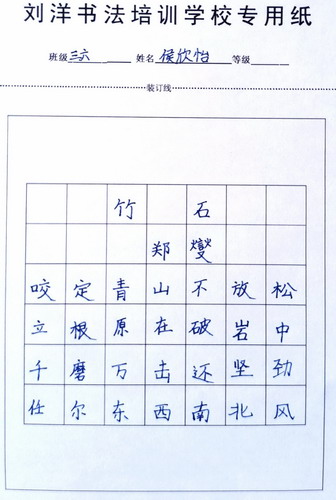 刘洋书法培训学校专用纸
班级 三六 姓名 侯欣怡 等级
装订线
竹 石
郑 燮
咬 定 青 山 不 放 松
立 根 原 在 破 岩 中
千 磨 万 击 还 坚 劲
任 尔 东 西 南 北 风